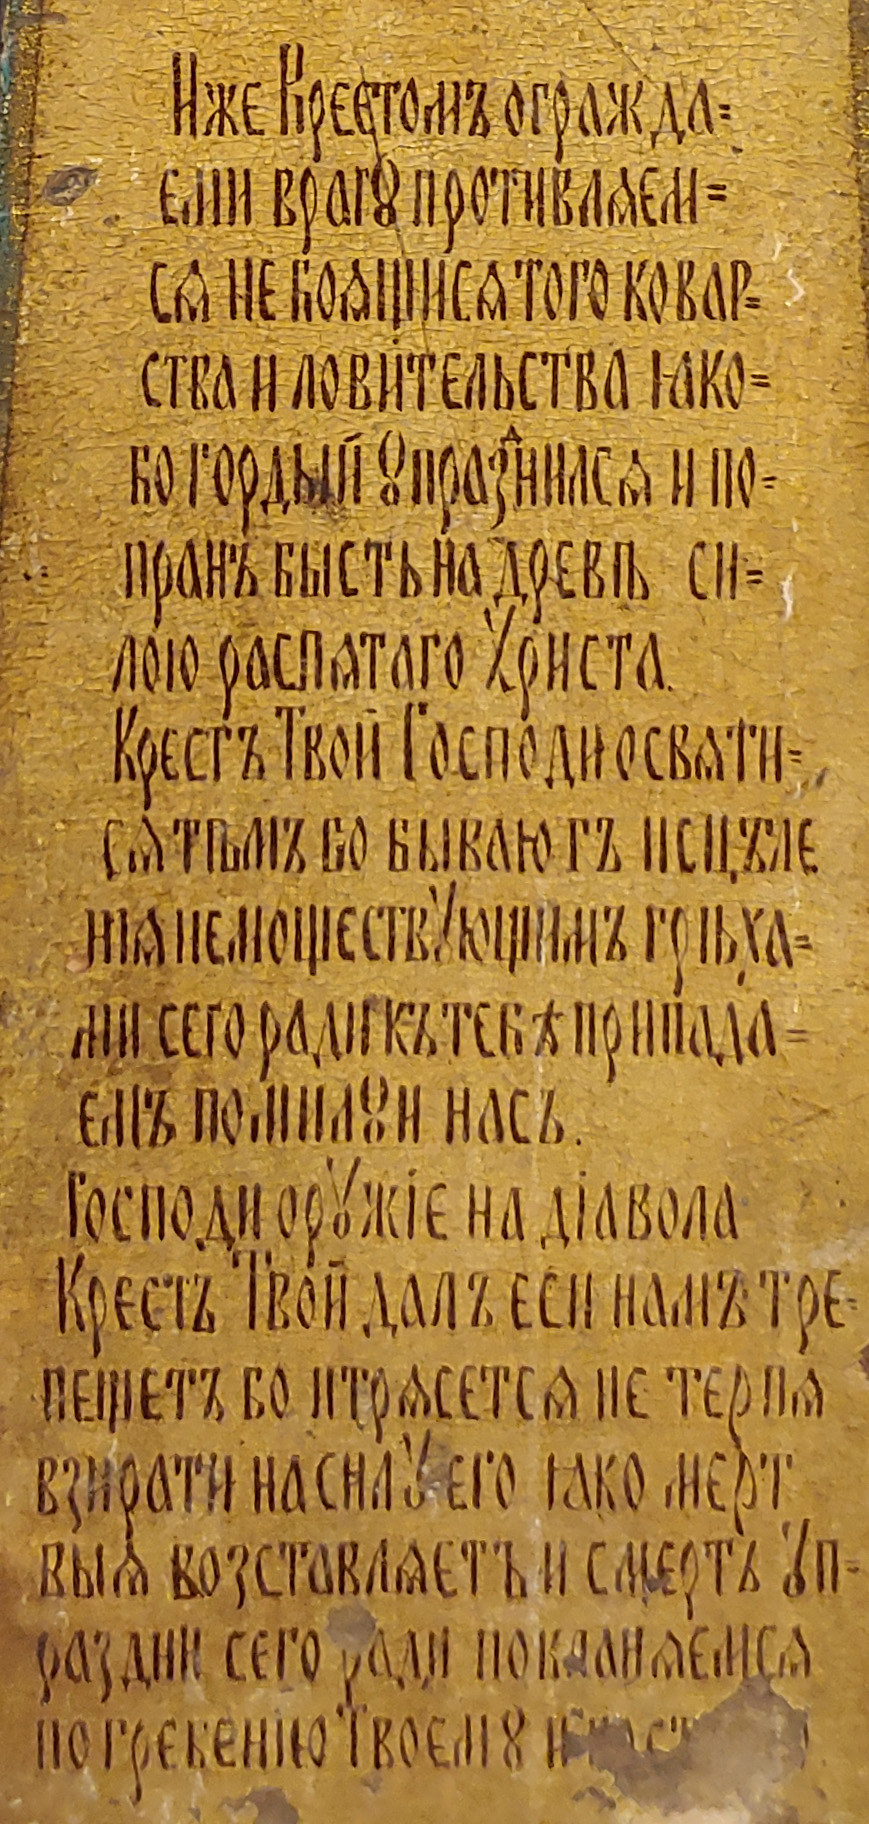 Иже Крестомъ огражда=
еми врагꙋ противляем=
сѧ не боѧщисѧ того ковар=
ства и ловительства ꙗко=
бо гордый ꙋпразⷣнилсѧ и по=
пранъ бысть на древѣ си=
лою распѧтаго Христа.
Крестъ Твой Господи освѧти=
сѧ тѣмъ бо бываютъ исцѣле
нїѧ немоществꙋющимъ грѣха=
ми сего ради къ тебѣ припада=
емъ помилꙋи насъ.
Господи орꙋжїе на дїавола
Крестъ Твой далъ еси намъ тре=
пещетъ бо и трѧсетсѧ не терпѧ
взирати на силꙋ его ꙗко мерт
выѧ возставлѧетъ и смерть ꙋп=
раздни сего ради покланѧемсѧ
погребенїю Твоемꙋ и